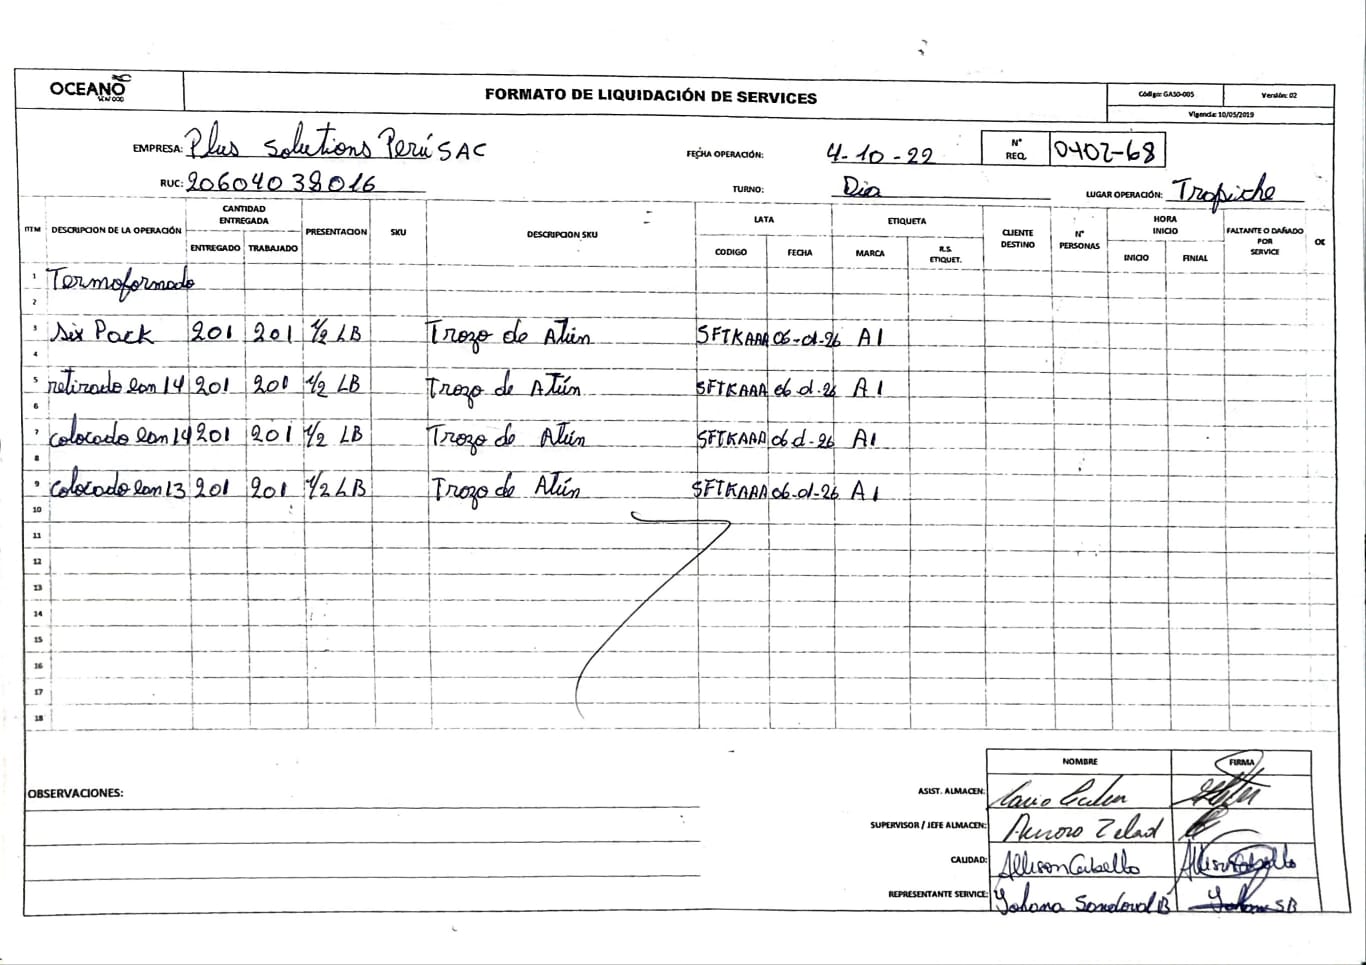 OCEANO
SEAFOOD
FORMATO DE LIQUIDACIÓN DE SERVICES
Código: GASO-005
Versión: 02
Vigencia: 10/05/2019
EMPRESA: Plus Solutions Perú SAC
FECHA OPERACIÓN: 4-10-22
N° REQ. 0402-68
RUC: 20604038016
TURNO: Dia
LUGAR OPERACIÓN: Tropiche
ITM DESCRIPCION DE LA OPERACIÓN CANTIDAD ENTREGADA PRESENTACION SKU DESCRIPCION SKU LATA ETIQUETA CLIENTE DESTINO N° PERSONAS HORA INICIO FALTANTE O DAÑADO POR SERVICE OK
ENTREGADO TRABAJADO CODIGO FECHA MARCA R.S. ETIQUET. INICIO FINIAL
1 Termoformado
2
3 Six Pack 201 201 1/2 LB Trozo de Atún SFTKAAA 06-01-26 A1
4
5 retirado con 14 201 201 1/2 LB Trozo de Atún SFTKAAA 06-01-26 A1
6
7 colocado con 14 201 201 1/2 LB Trozo de Atún SFTKAAA 06-01-26 A1
8
9 colocado con 13 201 201 1/2 LB Trozo de Atún SFTKAAA 06-01-26 A1
10
11
12
13
14
15
16
17
18
NOMBRE FIRMA
OBSERVACIONES:
ASIST. ALMACEN:
SUPERVISOR / JEFE ALMACEN:
CALIDAD: Allison Cabello
REPRESENTANTE SERVICE: Yohana Sandoval B SB